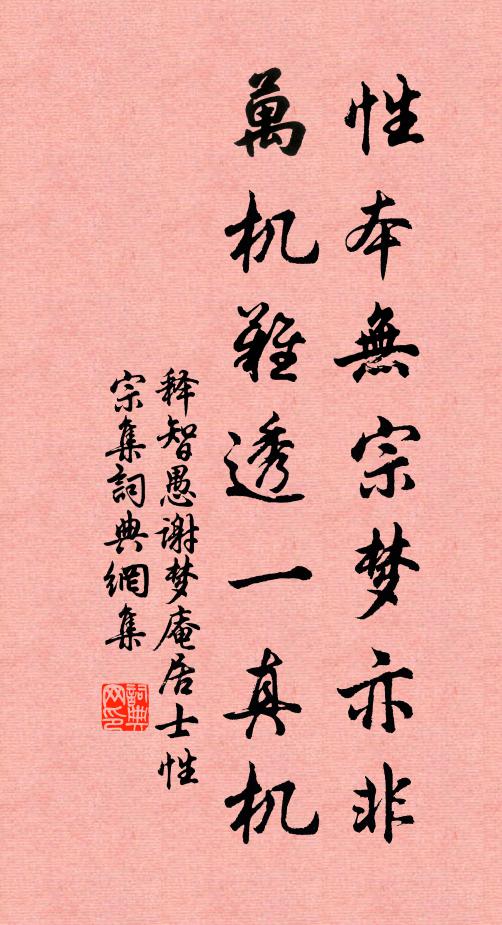 性本無宗梦亦非
萬机難透一真机
释智愚谢梦庵居士性
宗集詞典網集
詞典網印